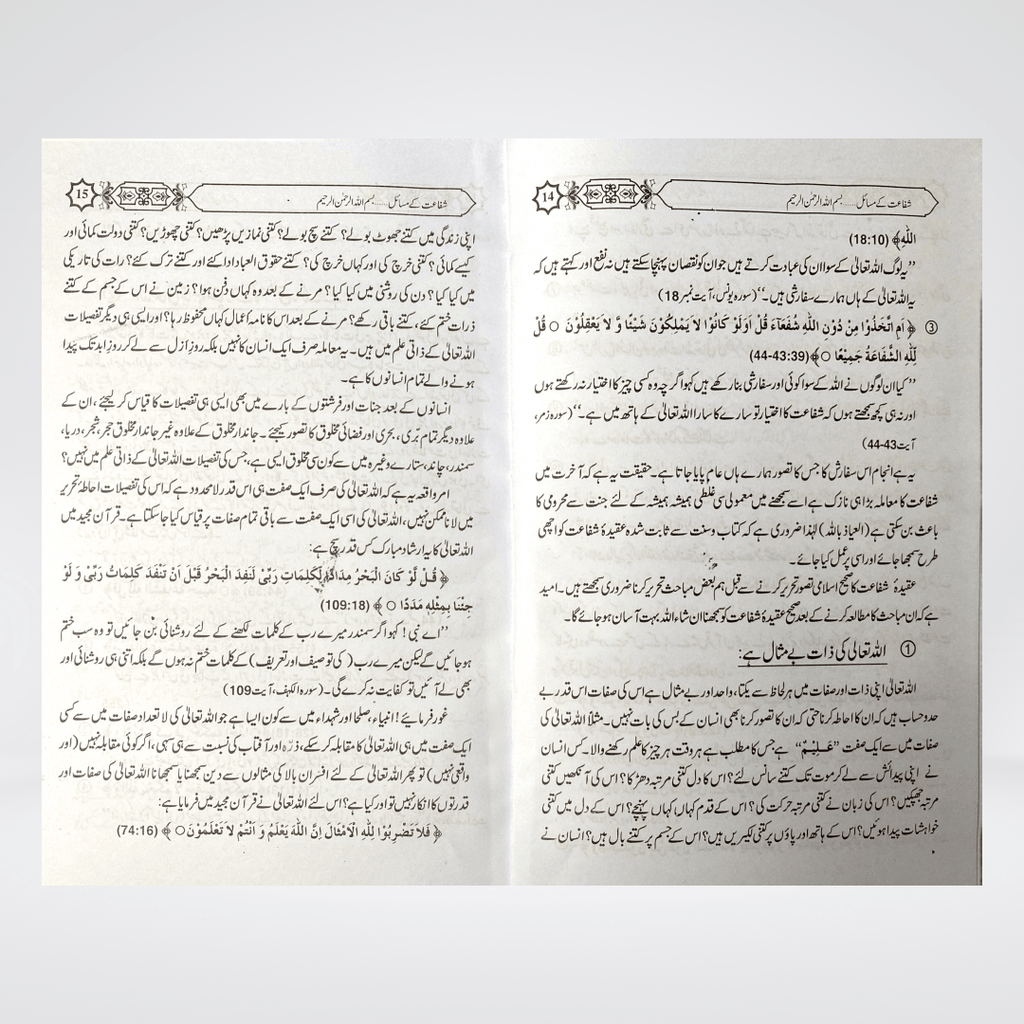 شفاعت کے مسائل ..... بسم اللہ الرحمٰن الرحیم
14
اللّٰهِ﴾ (18:10)
’’یہ لوگ اللہ تعالیٰ کے سوا ان کی عبادت کرتے ہیں جو ان کو نقصان پہنچا سکتے ہیں نہ نفع اور کہتے ہیں کہ
یہ اللہ تعالیٰ کے ہاں ہمارے سفارشی ہیں۔‘‘ (سورہ یونس، آیت نمبر 18)
③ ﴿ اَمِ اتَّخَذُوْا مِنْ دُوْنِ اللّٰهِ شُفَعَآءَ قُلْ اَوَلَوْ كَانُوْا لاَ يَمْلِكُوْنَ شَيْئًا وَّ لاَ يَعْقِلُوْنَ ○ قُلْ
لِلّٰهِ الشَّفَاعَةُ جَمِيْعًا ○ ﴾ (44-43:39)
’’کیا ان لوگوں نے اللہ کے سوا کوئی اور سفارشی بنا رکھے ہیں کہو اگرچہ وہ کسی چیز کا اختیار نہ رکھتے ہوں
اور نہ ہی کچھ سمجھتے ہوں کہو شفاعت کا اختیار تو سارے کا سارا اللہ تعالیٰ کے ہاتھ میں ہے۔‘‘ (سورہ زمر،
آیت 43-44)
یہ ہے انجام اس سفارش کا جس کا تصور ہمارے ہاں عام پایا جاتا ہے۔ حقیقت یہ ہے کہ آخرت میں
شفاعت کا معاملہ بڑا ہی نازک ہے اسے سمجھنے میں معمولی سی غلطی ہمیشہ ہمیشہ کے لئے جنت سے محرومی کا
باعث بن سکتی ہے (العیاذ باللہ) لہٰذا ضروری ہے کہ کتاب و سنت سے ثابت شدہ عقیدۂ شفاعت کو اچھی
طرح سمجھا جائے اور اسی پر عمل کیا جائے۔
عقیدۂ شفاعت کا صحیح اسلامی تصور تحریر کرنے سے قبل ہم بعض مباحث تحریر کرنا ضروری سمجھتے ہیں۔ امید
ہے کہ ان مباحث کا مطالعہ کرنے کے بعد صحیح عقیدۂ شفاعت کو سمجھنا ان شاء اللہ بہت آسان ہو جائے گا۔
① اللہ تعالیٰ کی ذات بے مثال ہے:
اللہ تعالیٰ اپنی ذات اور صفات میں ہر لحاظ سے یکتا، واحد اور بے مثال ہے اس کی صفات اس قدر بے
حدو حساب ہیں کہ ان کا احاطہ کرنا حتی کہ ان کا تصور کرنا بھی انسان کے بس کی بات نہیں۔ مثلاً اللہ تعالیٰ کی
صفات میں سے ایک صفت ’’عَلِیْمٌ‘‘ ہے جس کا مطلب ہے ہر وقت ہر چیز کا علم رکھنے والا۔ کس انسان
نے اپنی پیدائش سے لے کر موت تک کتنے سانس لئے؟ اس کا دل کتنی مرتبہ دھڑکا؟ اس کی آنکھیں کتنی
مرتبہ جھپکیں؟ اس کی زبان نے کتنی مرتبہ حرکت کی؟ اس کے قدم کہاں کہاں پہنچے؟ اس کے دل میں کتنی
خواہشات پیدا ہوئیں؟ اس کے ہاتھ اور پاؤں پر کتنی لکیریں ہیں؟ اس کے جسم پر کتنے بال ہیں؟ انسان نے
شفاعت کے مسائل ..... بسم اللہ الرحمٰن الرحیم
15
اپنی زندگی میں کتنے جھوٹ بولے؟ کتنے سچ بولے؟ کتنی نمازیں پڑھیں؟ کتنی چھوڑیں؟ کتنی دولت کمائی اور
کیسے کمائی؟ کتنی خرچ کی اور کہاں خرچ کی؟ کتنے حقوق العباد ادا کئے اور کتنے ترک کئے؟ رات کی تاریکی
میں کیا کیا؟ دن کی روشنی میں کیا کیا؟ مرنے کے بعد وہ کہاں دفن ہوا؟ زمین نے اس کے جسم کے کتنے
ذرات ختم کئے، کتنے باقی رکھے؟ مرنے کے بعد اس کا نامہ اعمال کہاں محفوظ رہا؟ اور ایسی ہی دیگر تفصیلات
اللہ تعالیٰ کے ذاتی علم میں ہیں۔ یہ معاملہ صرف ایک انسان کا نہیں بلکہ روز ازل سے لے کر روز ابد تک پیدا
ہونے والے تمام انسانوں کا ہے۔
انسانوں کے بعد جنات اور فرشتوں کے بارے میں بھی ایسی ہی تفصیلات کا قیاس کر لیجئے، ان کے
علاوہ دیگر تمام بَری، بحری اور فضائی مخلوق کا تصور کیجئے۔ جاندار مخلوق کے علاوہ غیر جاندار مخلوق حجر، شجر، دریا،
سمندر، چاند، ستارے وغیرہ میں سے کون سی مخلوق ایسی ہے، جس کی تفصیلات اللہ تعالیٰ کے ذاتی علم میں نہیں؟
امر واقعہ یہ ہے کہ اللہ تعالیٰ کی صرف ایک صفت ہی اس قدر لامحدود ہے کہ اس کی تفصیلات احاطۂ تحریر
میں لانا ممکن نہیں، اللہ تعالیٰ کی اسی ایک صفت سے باقی تمام صفات پر قیاس کیا جا سکتا ہے۔ قرآن مجید میں
اللہ تعالیٰ کا یہ ارشاد مبارک کس قدر سچ ہے:
﴿ قُلْ لَّوْ كَانَ الْبَحْرُ مِدَادًا لِّكَلِمَاتِ رَبِّىْ لَنَفِدَ الْبَحْرُ قَبْلَ اَنْ تَنْفَدَ كَلِمَاتُ رَبِّىْ وَ لَوْ
جِئْنَا بِمِثْلِهٖ مَدَدًا ○ ﴾ (109:18)
’’اے نبی! کہو اگر سمندر میرے رب کے کلمات لکھنے کے لئے روشنائی بن جائیں تو وہ سب ختم
ہو جائیں گے لیکن میرے رب (کی توصیف اور تعریف) کے کلمات ختم نہ ہوں گے بلکہ اتنی ہی روشنائی اور
بھی لے آئیں تو کفایت نہ کرے گی۔ (سورہ الکہف، آیت 109)
غور فرمائیے! انبیاء، صلحا اور شہداء میں سے کون ایسا ہے جو اللہ تعالیٰ کی لاتعداد صفات میں سے کسی
ایک صفت میں ہی اللہ تعالیٰ کا مقابلہ کر سکے، ذرّہ اور آفتاب کی نسبت سے ہی سہی، اگر کوئی مقابلہ نہیں (اور
واقعی نہیں) تو پھر اللہ تعالیٰ کے لئے افسران بالا کی مثالوں سے دین سمجھنا یا سمجھانا اللہ تعالیٰ کی صفات اور
قدرتوں کا انکار نہیں تو اور کیا ہے؟ اس لئے اللہ تعالیٰ نے قرآن مجید میں فرمایا ہے:
﴿ فَلاَ تَضْرِبُوْا لِلّٰهِ الْاَمْثَالَ اِنَّ اللّٰهَ يَعْلَمُ وَ اَنْتُمْ لاَ تَعْلَمُوْنَ ○ ﴾ (74:16)